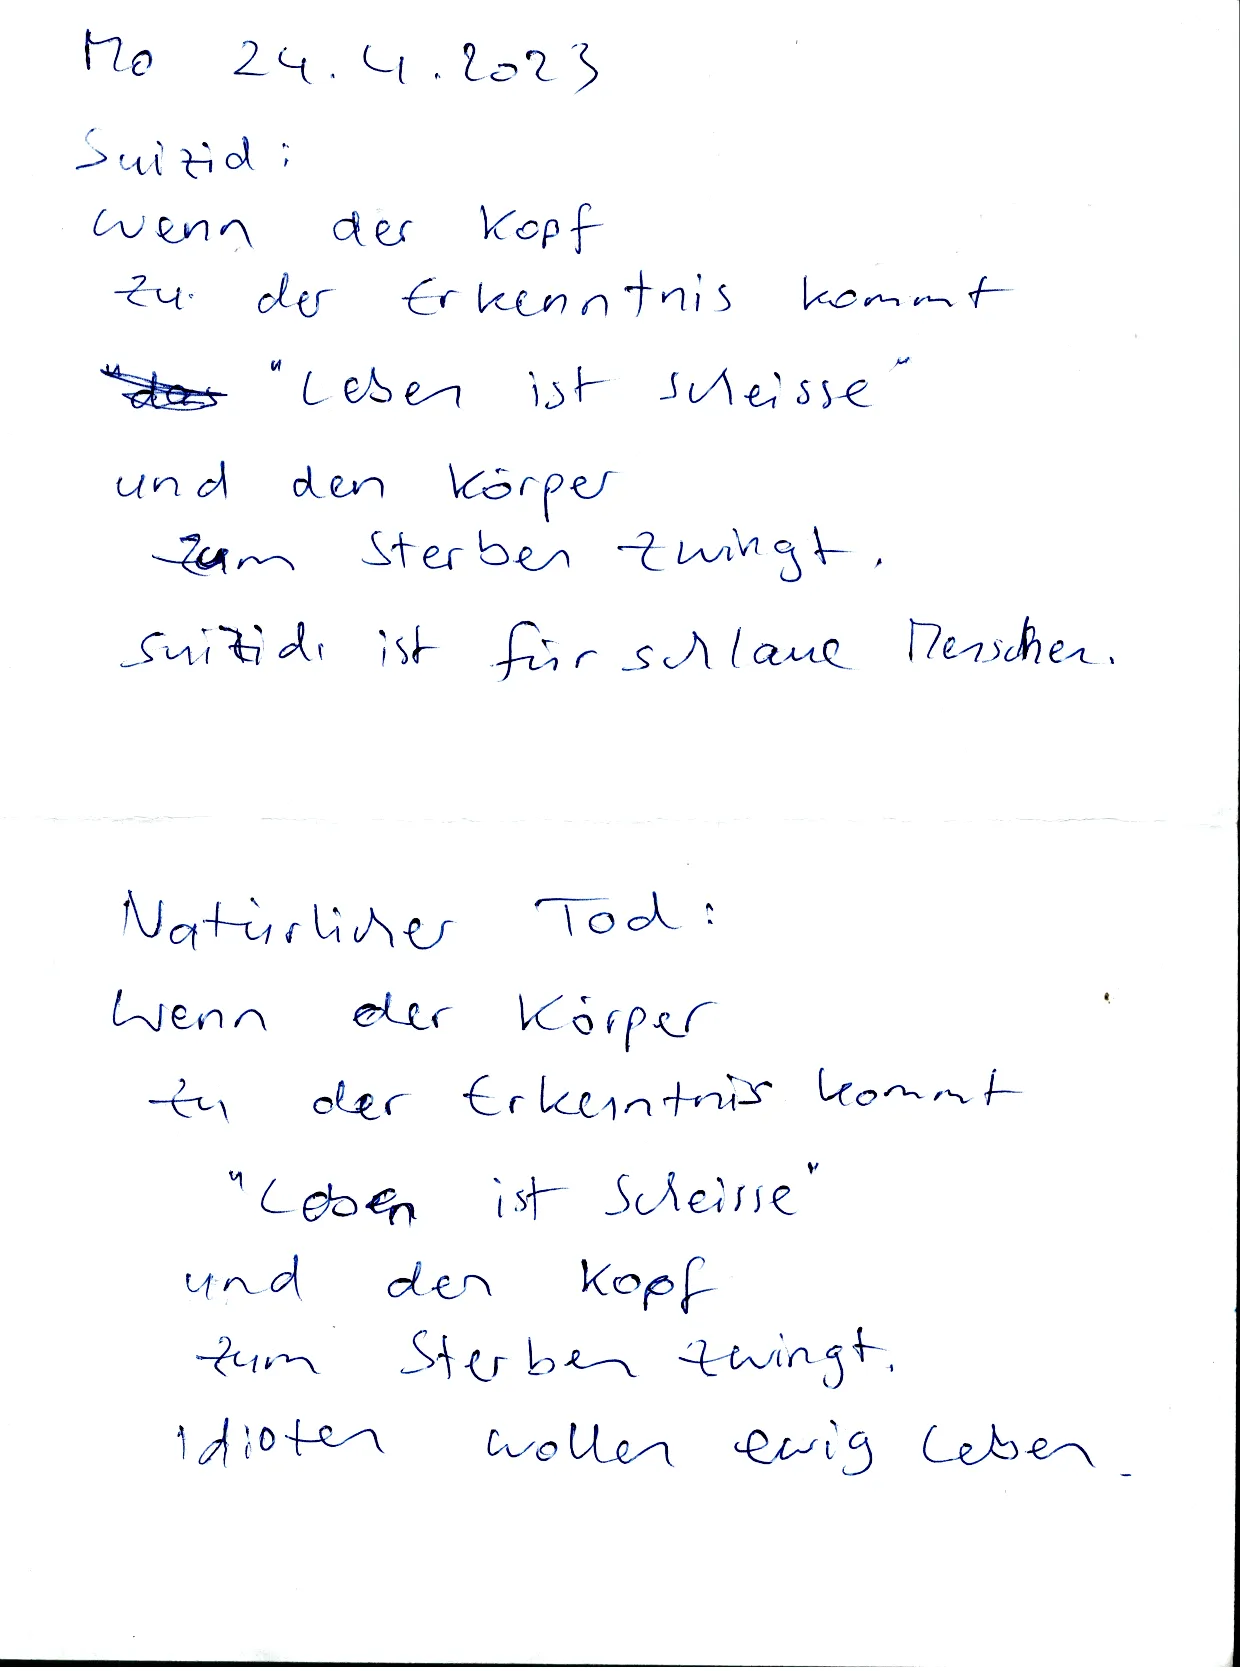 Mo 24.4.2023
Suizid:
wenn der Kopf
zu der Erkenntnis kommt
"das "Leben ist scheisse"
und den Körper
zum Sterben zwingt.
suizid ist für schlaue Menschen.
Natürlicher Tod:
wenn der Körper
zu der Erkenntnis kommt
"Leben ist Scheisse"
und den Kopf
zum Sterben zwingt.
idioten wollen ewig Leben.